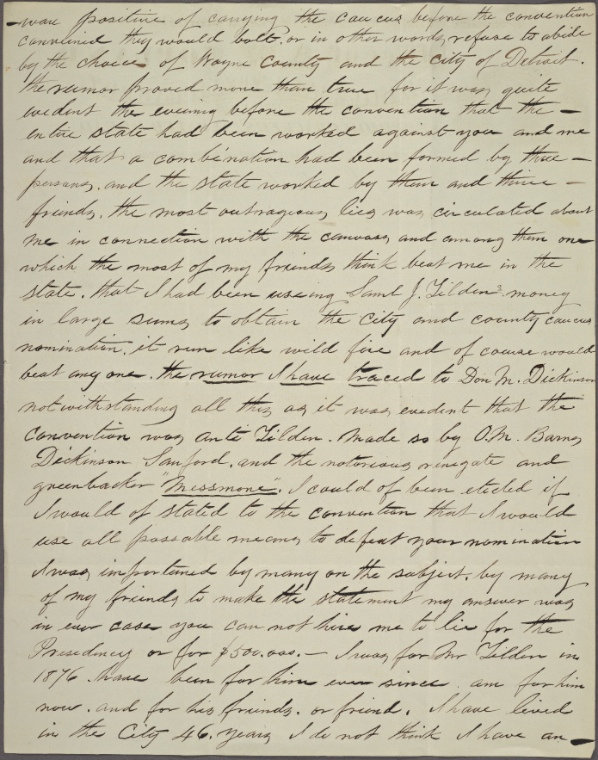 —ware positive of carrying the caucus before the convention
convened they would bolt, or in other words, refuse to abide
by the choice of Wayne County and the city of Detroit.
the rumor proved more than true for it was quite
evident the evening before the convention that the —
entire state had been worked against you and me
and that a combination had been formed by three —
persons, and the state worked by them and there —
friends, the most outrageous lies was circulated about
me in connection with the canvass, and among them one
which the most of my friends think beat me in the
state. that I had been useing Saml J. Tilden's money
in large sums to obtain the City and County caucus
nomination. it run like wild fire and of course would
beat any one. the rumor I have traced to Don M. Dickinson
notwithstanding all this as it was evident that the
Convention was ante Tilden. Made so by O.M. Barnes
Dickinson Sanford. and the notorious renegate and
greenbacker "Messmore". I could of been elected if
I would of stated to the convention that I would
use all possable means to defeat your nomination
I was importuned by many on the subject. by many
of my friends to make the statement my answer was
in ever case you can not hire me to lie for the
Presidency or for $500,000. — I was for Mr Tilden in
1876. have been for him ever since. am for him
now. and for his friends. or friend. I have lived
in the City 46. years I do not think I have an —